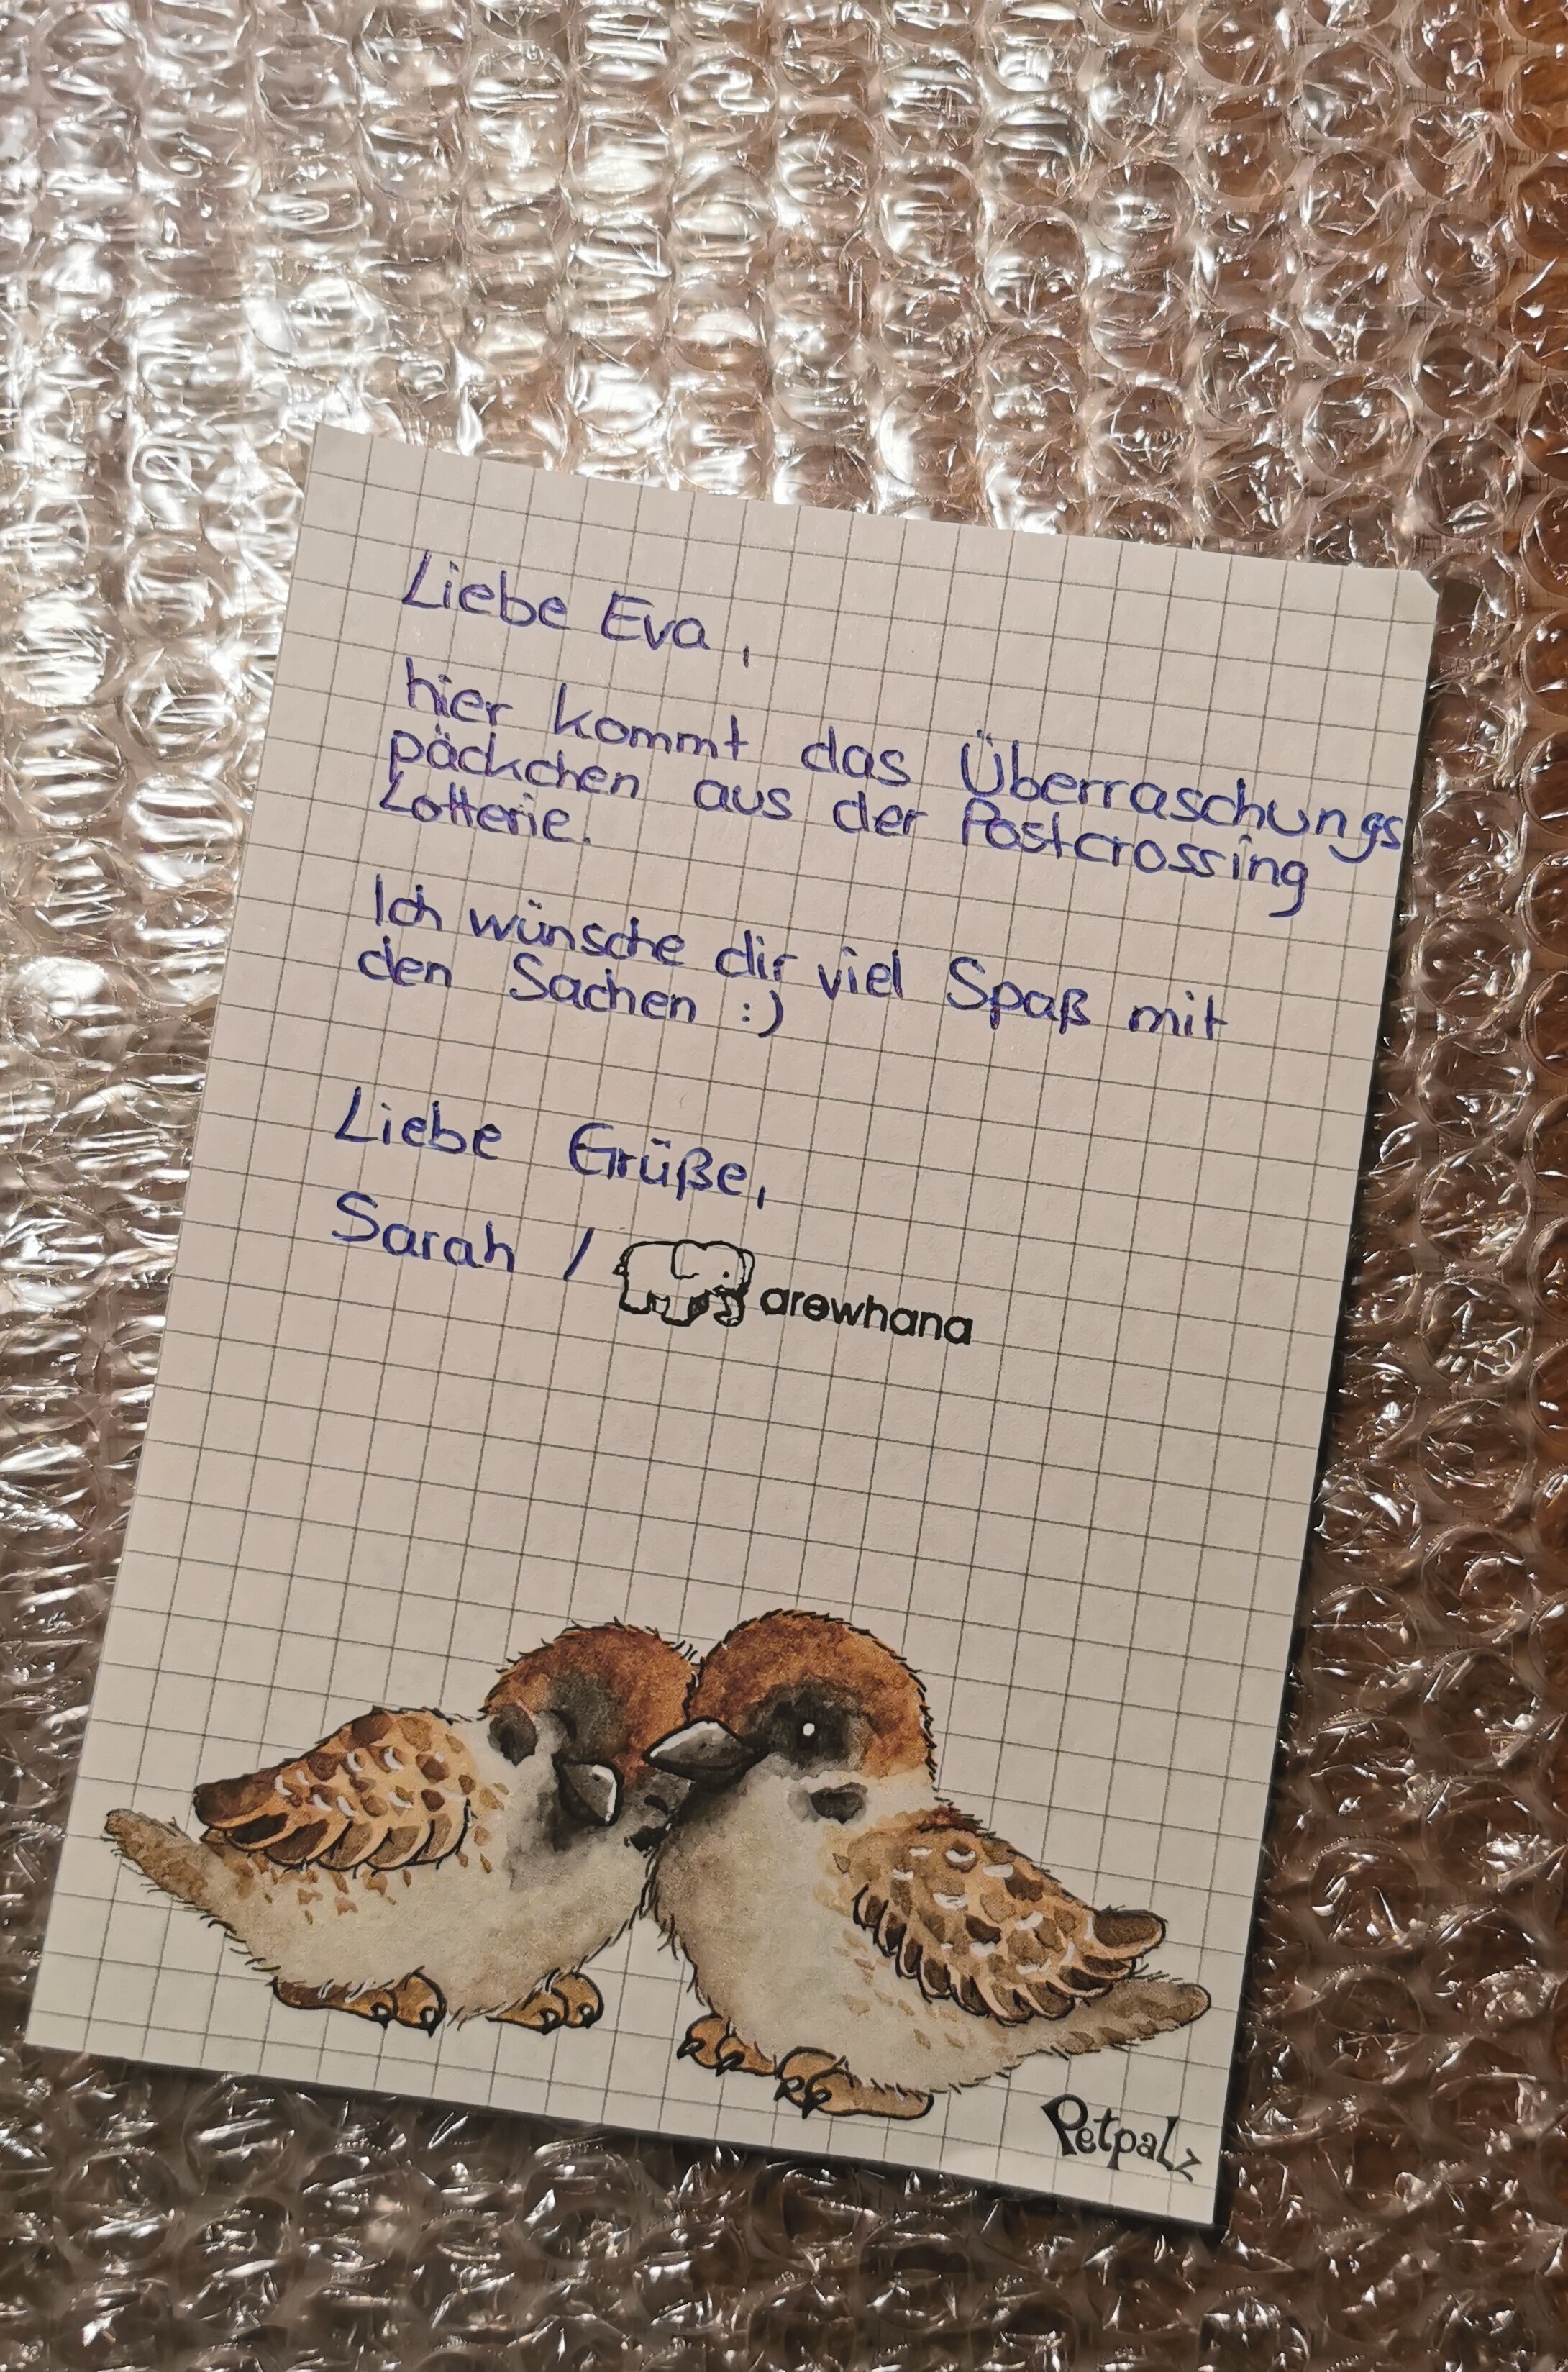 Liebe Eva,
hier kommt das Überraschungs
päckchen aus der Postcrossing
Lotterie.
Ich wünsche dir viel Spaß mit
den Sachen :)
Liebe Grüße,
Sarah / arewhana
Petpalz